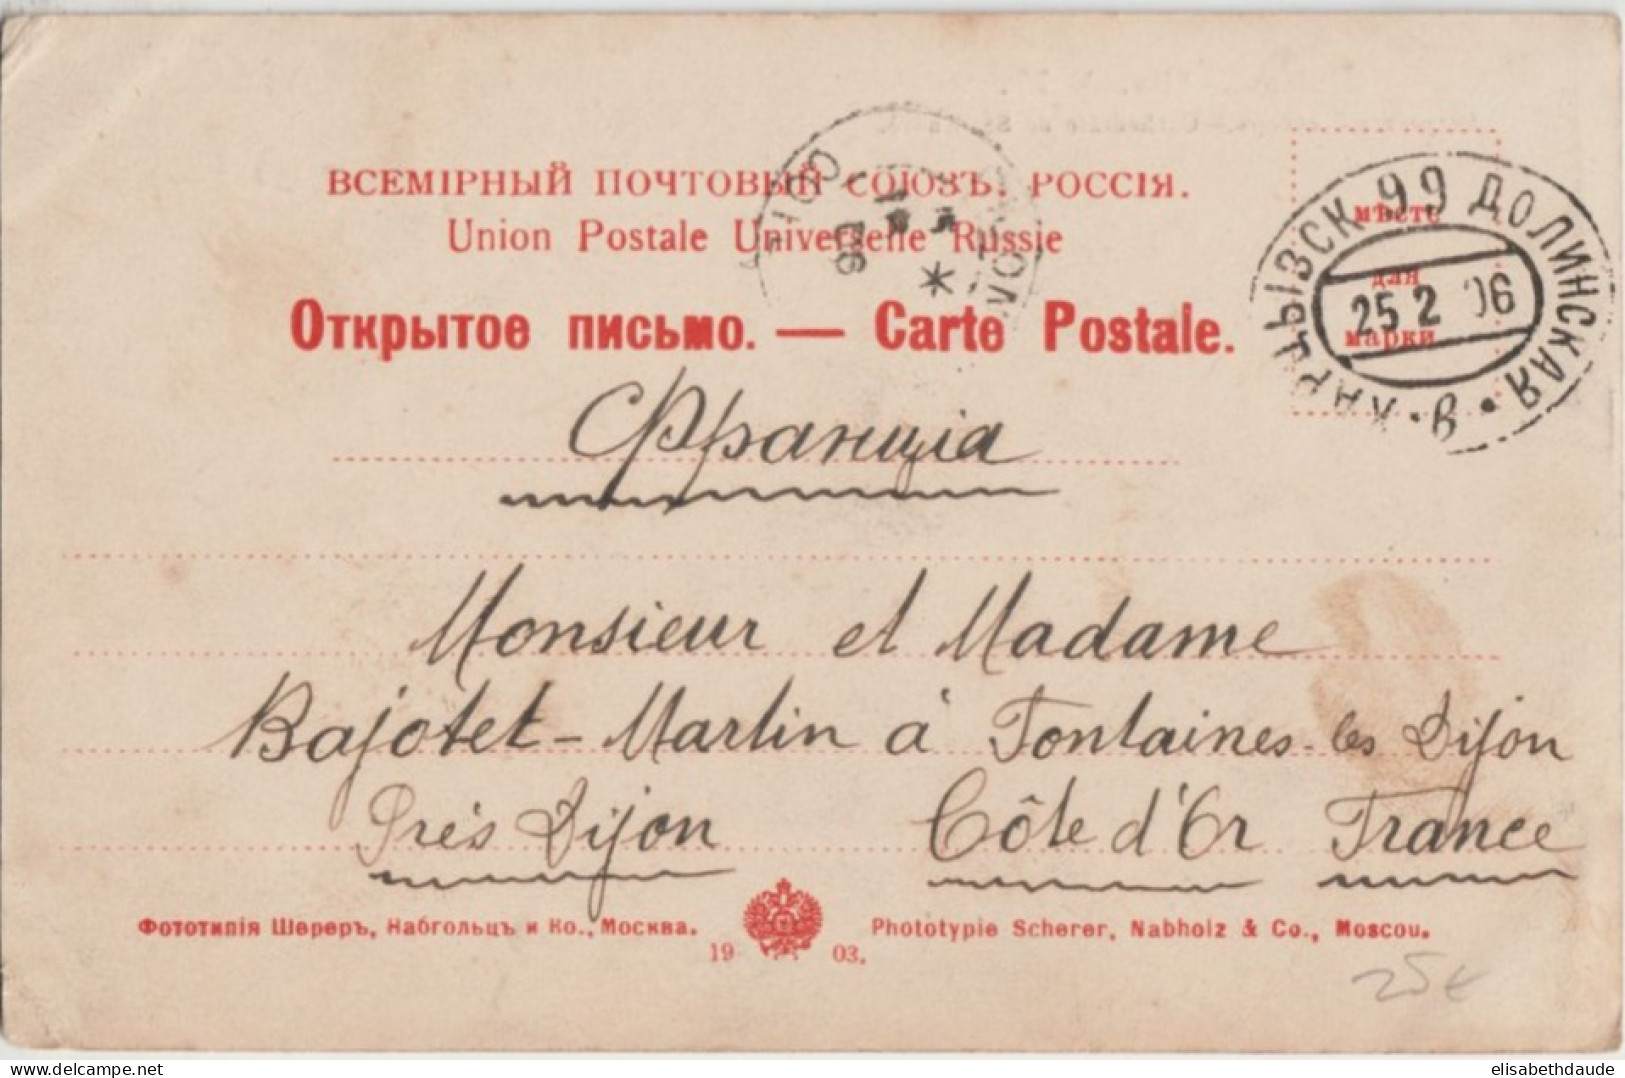 ВСЕМІРНЫЙ ПОЧТОВЫЙ СОЮЗЪ. РОССІЯ.
Union Postale Universelle Russie
Открытое письмо. — Carte Postale.
мѣсто
для
марки
ХАРЦЫЗСК 99 ДОЛИНСКАЯ
25 2 06
* В *
06
Франція
Monsieur et Madame
Bajotet - Martin à Fontaines-les Dijon
Près Dijon Côte d'Or France
Фототипія Шереръ, Набгольцъ и Ко., Москва.
1903.
Phototypie Scherer, Nabholz & Co., Moscou.
25€
delcampe.net
elisabethdaude